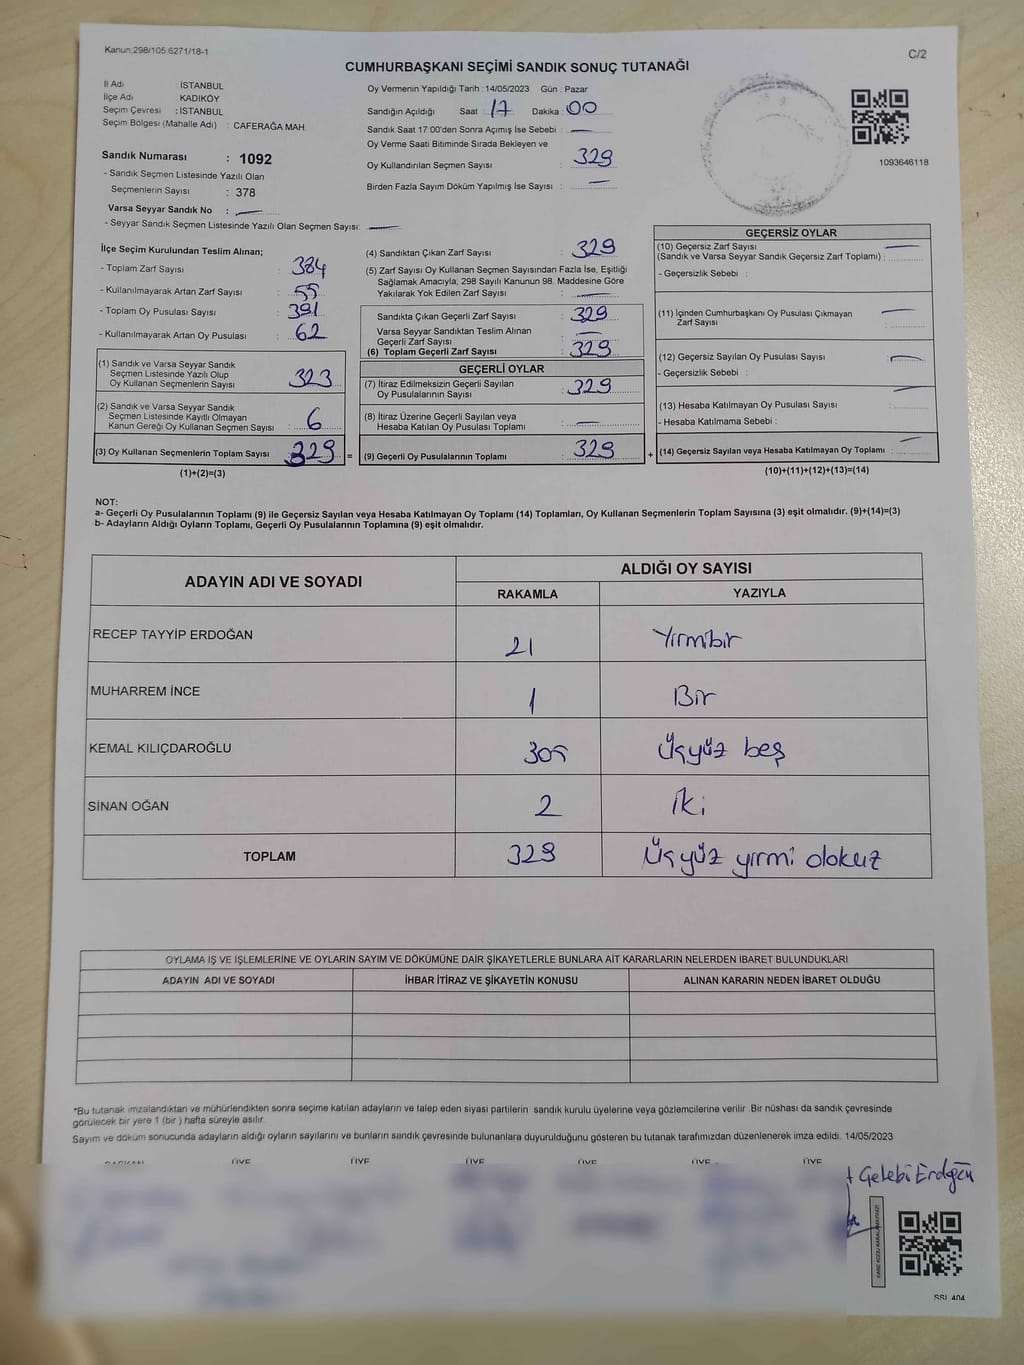 Kanun:298/105 6271/18-1
C/2
CUMHURBAŞKANI SEÇİMİ SANDIK SONUÇ TUTANAĞI
İl Adı : İSTANBUL
İlçe Adı : KADIKÖY
Seçim Çevresi : İSTANBUL
Seçim Bölgesi (Mahalle Adı) : CAFERAĞA MAH.
Sandık Numarası : 1092
- Sandık Seçmen Listesinde Yazılı Olan
Seçmenlerin Sayısı : 378
Varsa Seyyar Sandık No :
- Seyyar Sandık Seçmen Listesinde Yazılı Olan Seçmen Sayısı:
Oy Vermenin Yapıldığı Tarih : 14/05/2023 Gün : Pazar
Sandığın Açıldığı Saat 17 Dakika : 00
Sandık Saat 17:00'den Sonra Açımış İse Sebebi :
Oy Verme Saati Bitiminde Sırada Bekleyen ve
Oy Kullandırılan Seçmen Sayısı : 329
Birden Fazla Sayım Döküm Yapılmış İse Sayısı :
1093646118
İlçe Seçim Kurulundan Teslim Alınan;
- Toplam Zarf Sayısı : 384
- Kullanılmayarak Artan Zarf Sayısı : 55
- Toplam Oy Pusulası Sayısı : 391
- Kullanılmayarak Artan Oy Pusulası : 62
(1) Sandık ve Varsa Seyyar Sandık
Seçmen Listesinde Yazılı Olup
Oy Kullanan Seçmenlerin Sayısı : 323
(2) Sandık ve Varsa Seyyar Sandık
Seçmen Listesinde Kayıtlı Olmayan
Kanun Gereği Oy Kullanan Seçmen Sayısı : 6
(3) Oy Kullanan Seçmenlerin Toplam Sayısı : 329 =
(1)+(2)=(3)
(4) Sandıktan Çıkan Zarf Sayısı : 329
(5) Zarf Sayısı Oy Kullanan Seçmen Sayısından Fazla İse, Eşitliği
Sağlamak Amacıyla; 298 Sayılı Kanunun 98. Maddesine Göre
Yakılarak Yok Edilen Zarf Sayısı :
Sandıkta Çıkan Geçerli Zarf Sayısı : 329
Varsa Seyyar Sandıktan Teslim Alınan
Geçerli Zarf Sayısı :
(6) Toplam Geçerli Zarf Sayısı : 329
GEÇERLİ OYLAR
(7) İtiraz Edilmeksizin Geçerli Sayılan
Oy Pusulalarının Sayısı : 329
(8) İtiraz Üzerine Geçerli Sayılan veya
Hesaba Katılan Oy Pusulası Toplamı :
(9) Geçerli Oy Pusulalarının Toplamı : 329 +
GEÇERSİZ OYLAR
(10) Geçersiz Zarf Sayısı
(Sandık ve Varsa Seyyar Sandık Geçersiz Zarf Toplamı) :
- Geçersizlik Sebebi :
(11) İçinden Cumhurbaşkanı Oy Pusulası Çıkmayan
Zarf Sayısı :
(12) Geçersiz Sayılan Oy Pusulası Sayısı :
- Geçersizlik Sebebi :
(13) Hesaba Katılmayan Oy Pusulası Sayısı :
- Hesaba Katılmama Sebebi :
(14) Geçersiz Sayılan veya Hesaba Katılmayan Oy Toplamı :
(10)+(11)+(12)+(13)=(14)
NOT:
a- Geçerli Oy Pusulalarının Toplamı (9) ile Geçersiz Sayılan veya Hesaba Katılmayan Oy Toplamı (14) Toplamları, Oy Kullanan Seçmenlerin Toplam Sayısına (3) eşit olmalıdır. (9)+(14)=(3)
b- Adayların Aldığı Oyların Toplamı, Geçerli Oy Pusulalarının Toplamına (9) eşit olmalıdır.
ADAYIN ADI VE SOYADI ALDIĞI OY SAYISI
RAKAMLA YAZIYLA
RECEP TAYYİP ERDOĞAN 21 Yirmibir
MUHARREM İNCE 1 Bir
KEMAL KILIÇDAROĞLU 305 Üçyüz beş
SİNAN OĞAN 2 İki
TOPLAM 329 Üçyüz yirmi dokuz
OYLAMA İŞ VE İŞLEMLERİNE VE OYLARIN SAYIM VE DÖKÜMÜNE DAİR ŞİKAYETLERLE BUNLARA AİT KARARLARIN NELERDEN İBARET BULUNDUKLARI
ADAYIN ADI VE SOYADI İHBAR İTİRAZ VE ŞİKAYETİN KONUSU ALINAN KARARIN NEDEN İBARET OLDUĞU
*Bu tutanak imzalandıktan ve mühürlendikten sonra seçime katılan adayların ve talep eden siyasi partilerin sandık kurulu üyelerine veya gözlemcilerine verilir. Bir nüshası da sandık çevresinde
görülecek bir yere 1 (bir) hafta süreyle asılır.
Sayım ve döküm sonucunda adayların aldığı oyların sayılarını ve bunların sandık çevresinde bulunanlara duyurulduğunu gösteren bu tutanak tarafımızdan düzenlenerek imza edildi. 14/05/2023
BAŞKAN ÜYE ÜYE ÜYE ÜYE ÜYE ÜYE
SSI 404